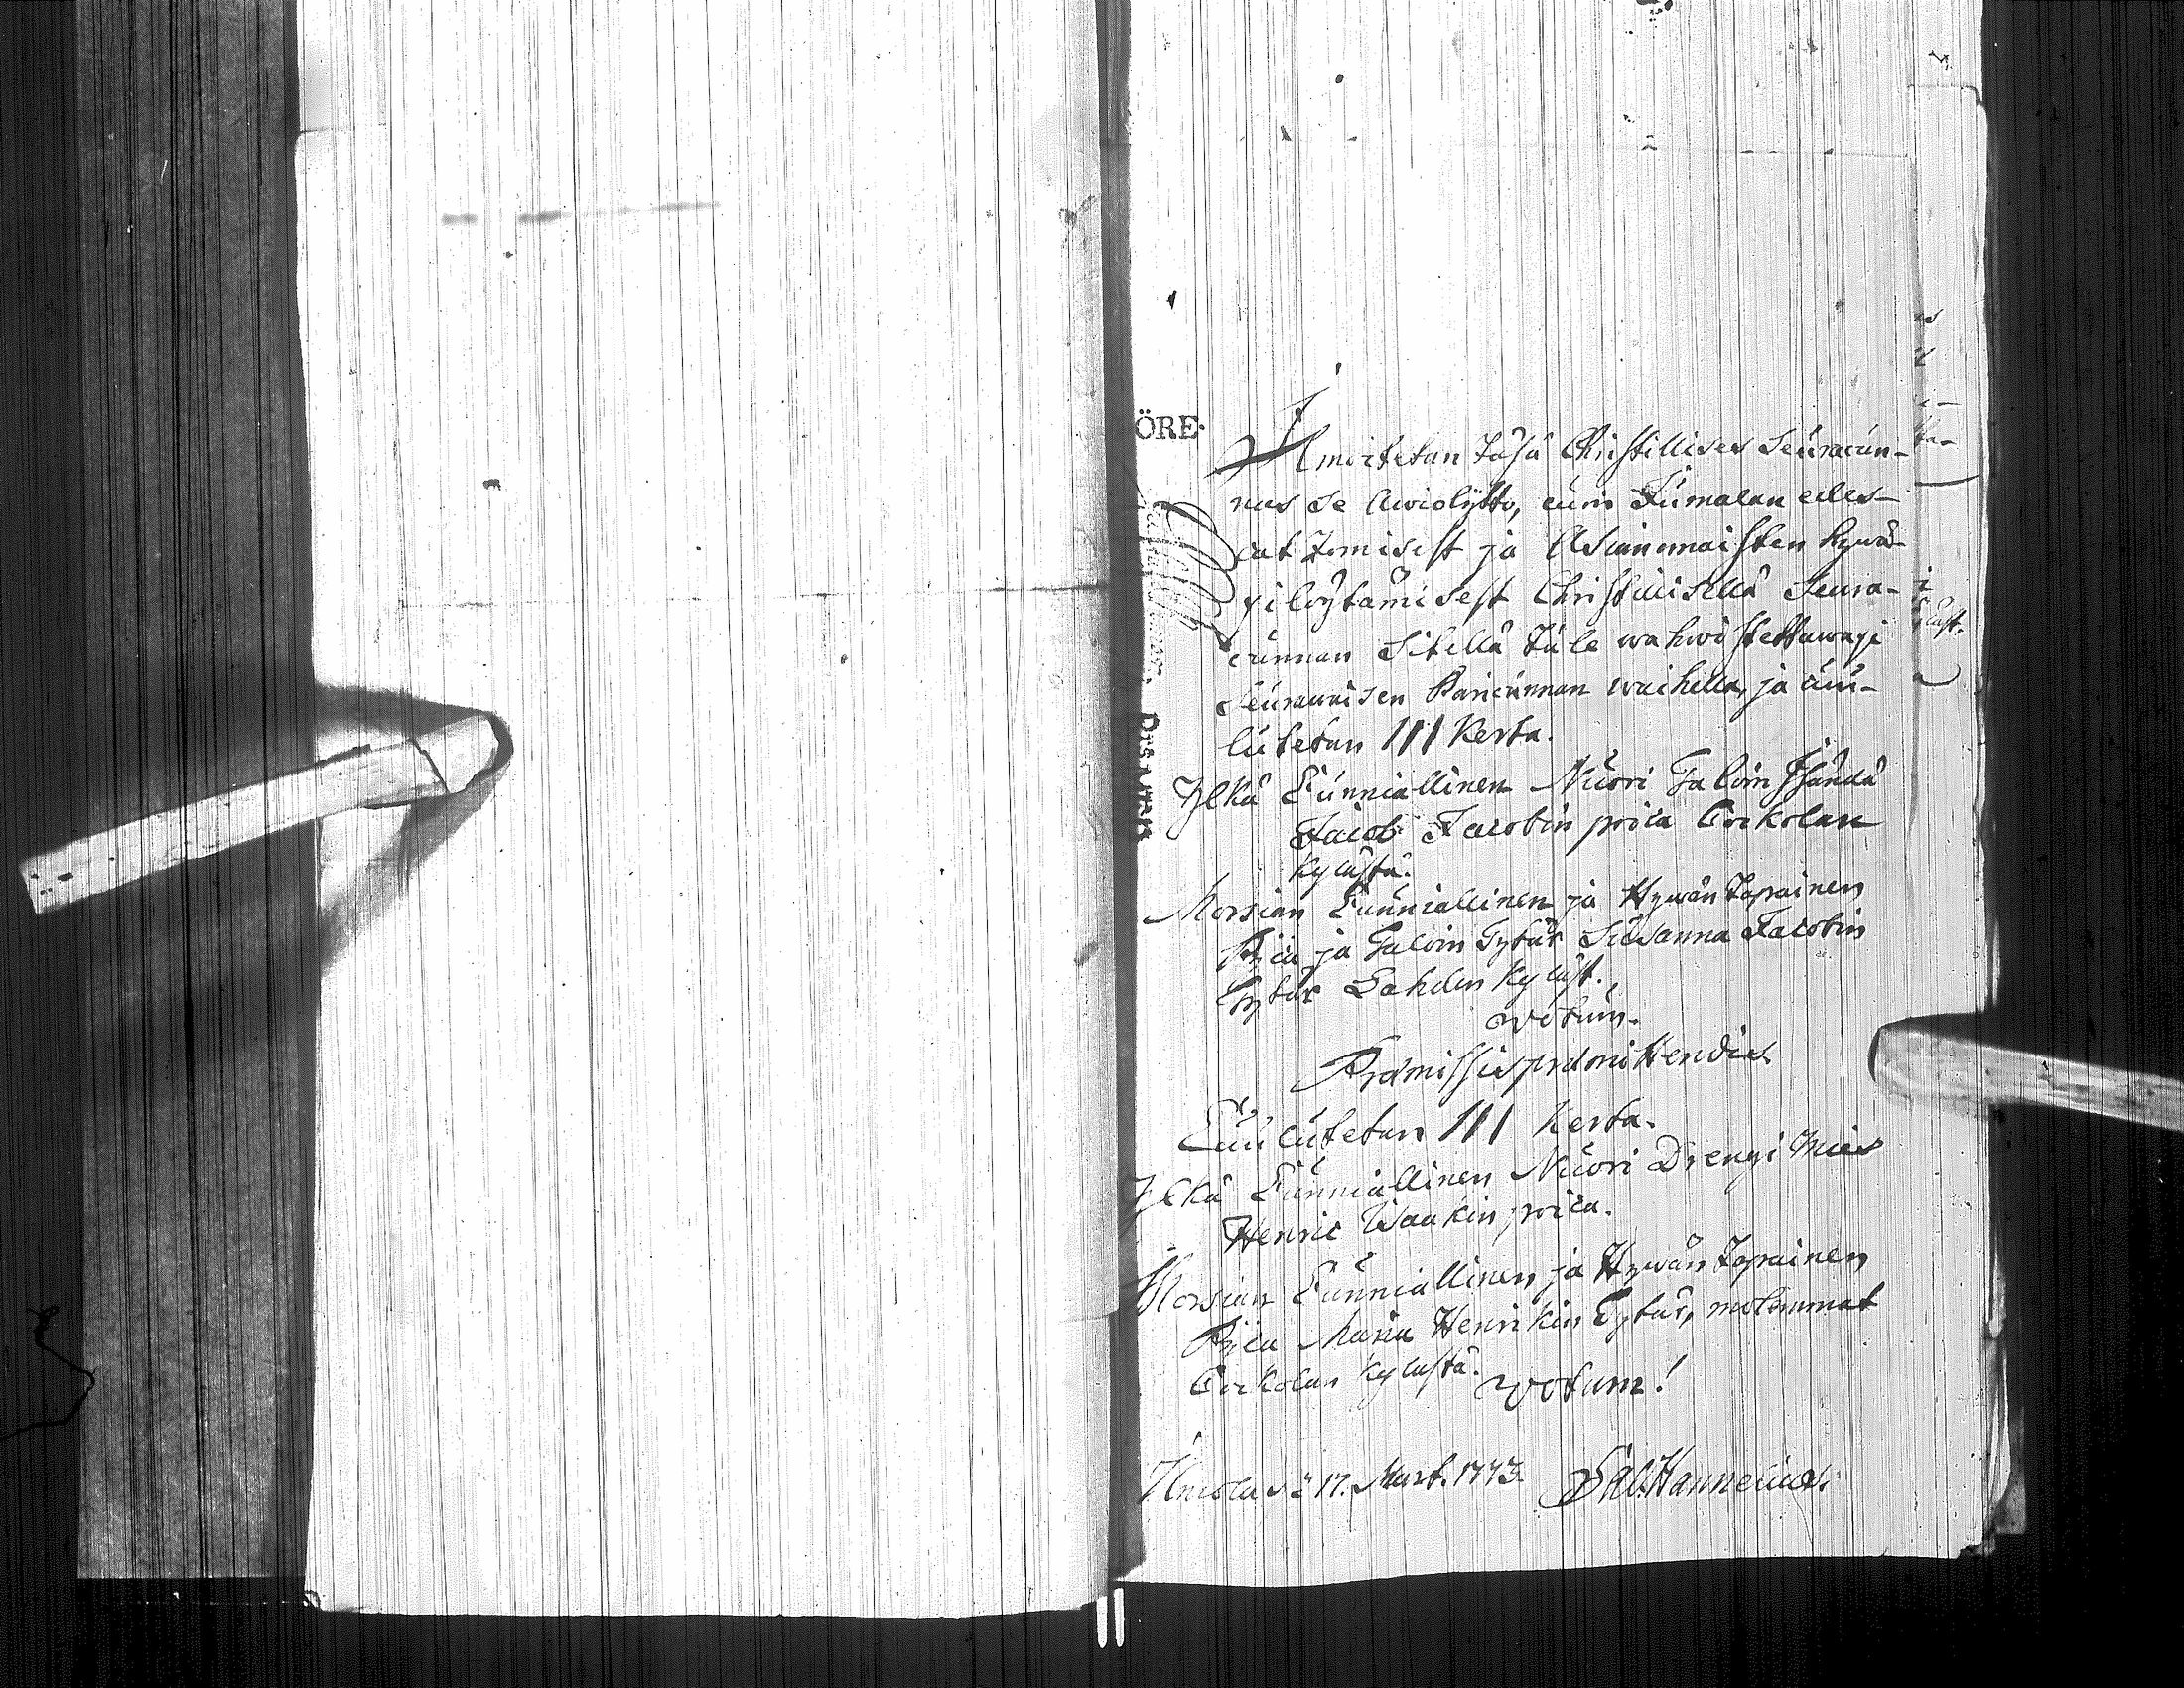 ÖRE.
Ilmoitetan täsä Christillises Seuracun-
nas se Awiolijtto, cuin Jumalan edes-
cat zomisest ja Asianomaisten hywä-
xi löytämisest Christillisellä Seura-
cunnan Sitellä tule wahwistettawaxi
Seurawaisen Paricunnan waihella, ja cuu-
lutetan III Kerta.
Ylkä Cunniallinen Nuori Taloin Isändä
Jacob Jacobin poica Corkolan
kylästä.
Morsian Cunniallinen ja Hywän tapainen
Pijca ja Taloin Tytär Susanna Jacobin
Tytär Lahden kyläst.
Votum.
Præmissis præmittendis
Cuulutetan III Kerta.
Ylkä Cunniallinen Nuori Drengi Mies
Henric Waakin poica.
Morsian Cunniallinen ja Hywän tapainen
Pijca Maria Henrikin Tytär, molemmat
Corkolan kylästä. Votum!
17. Mart. 1773. Hannelius.